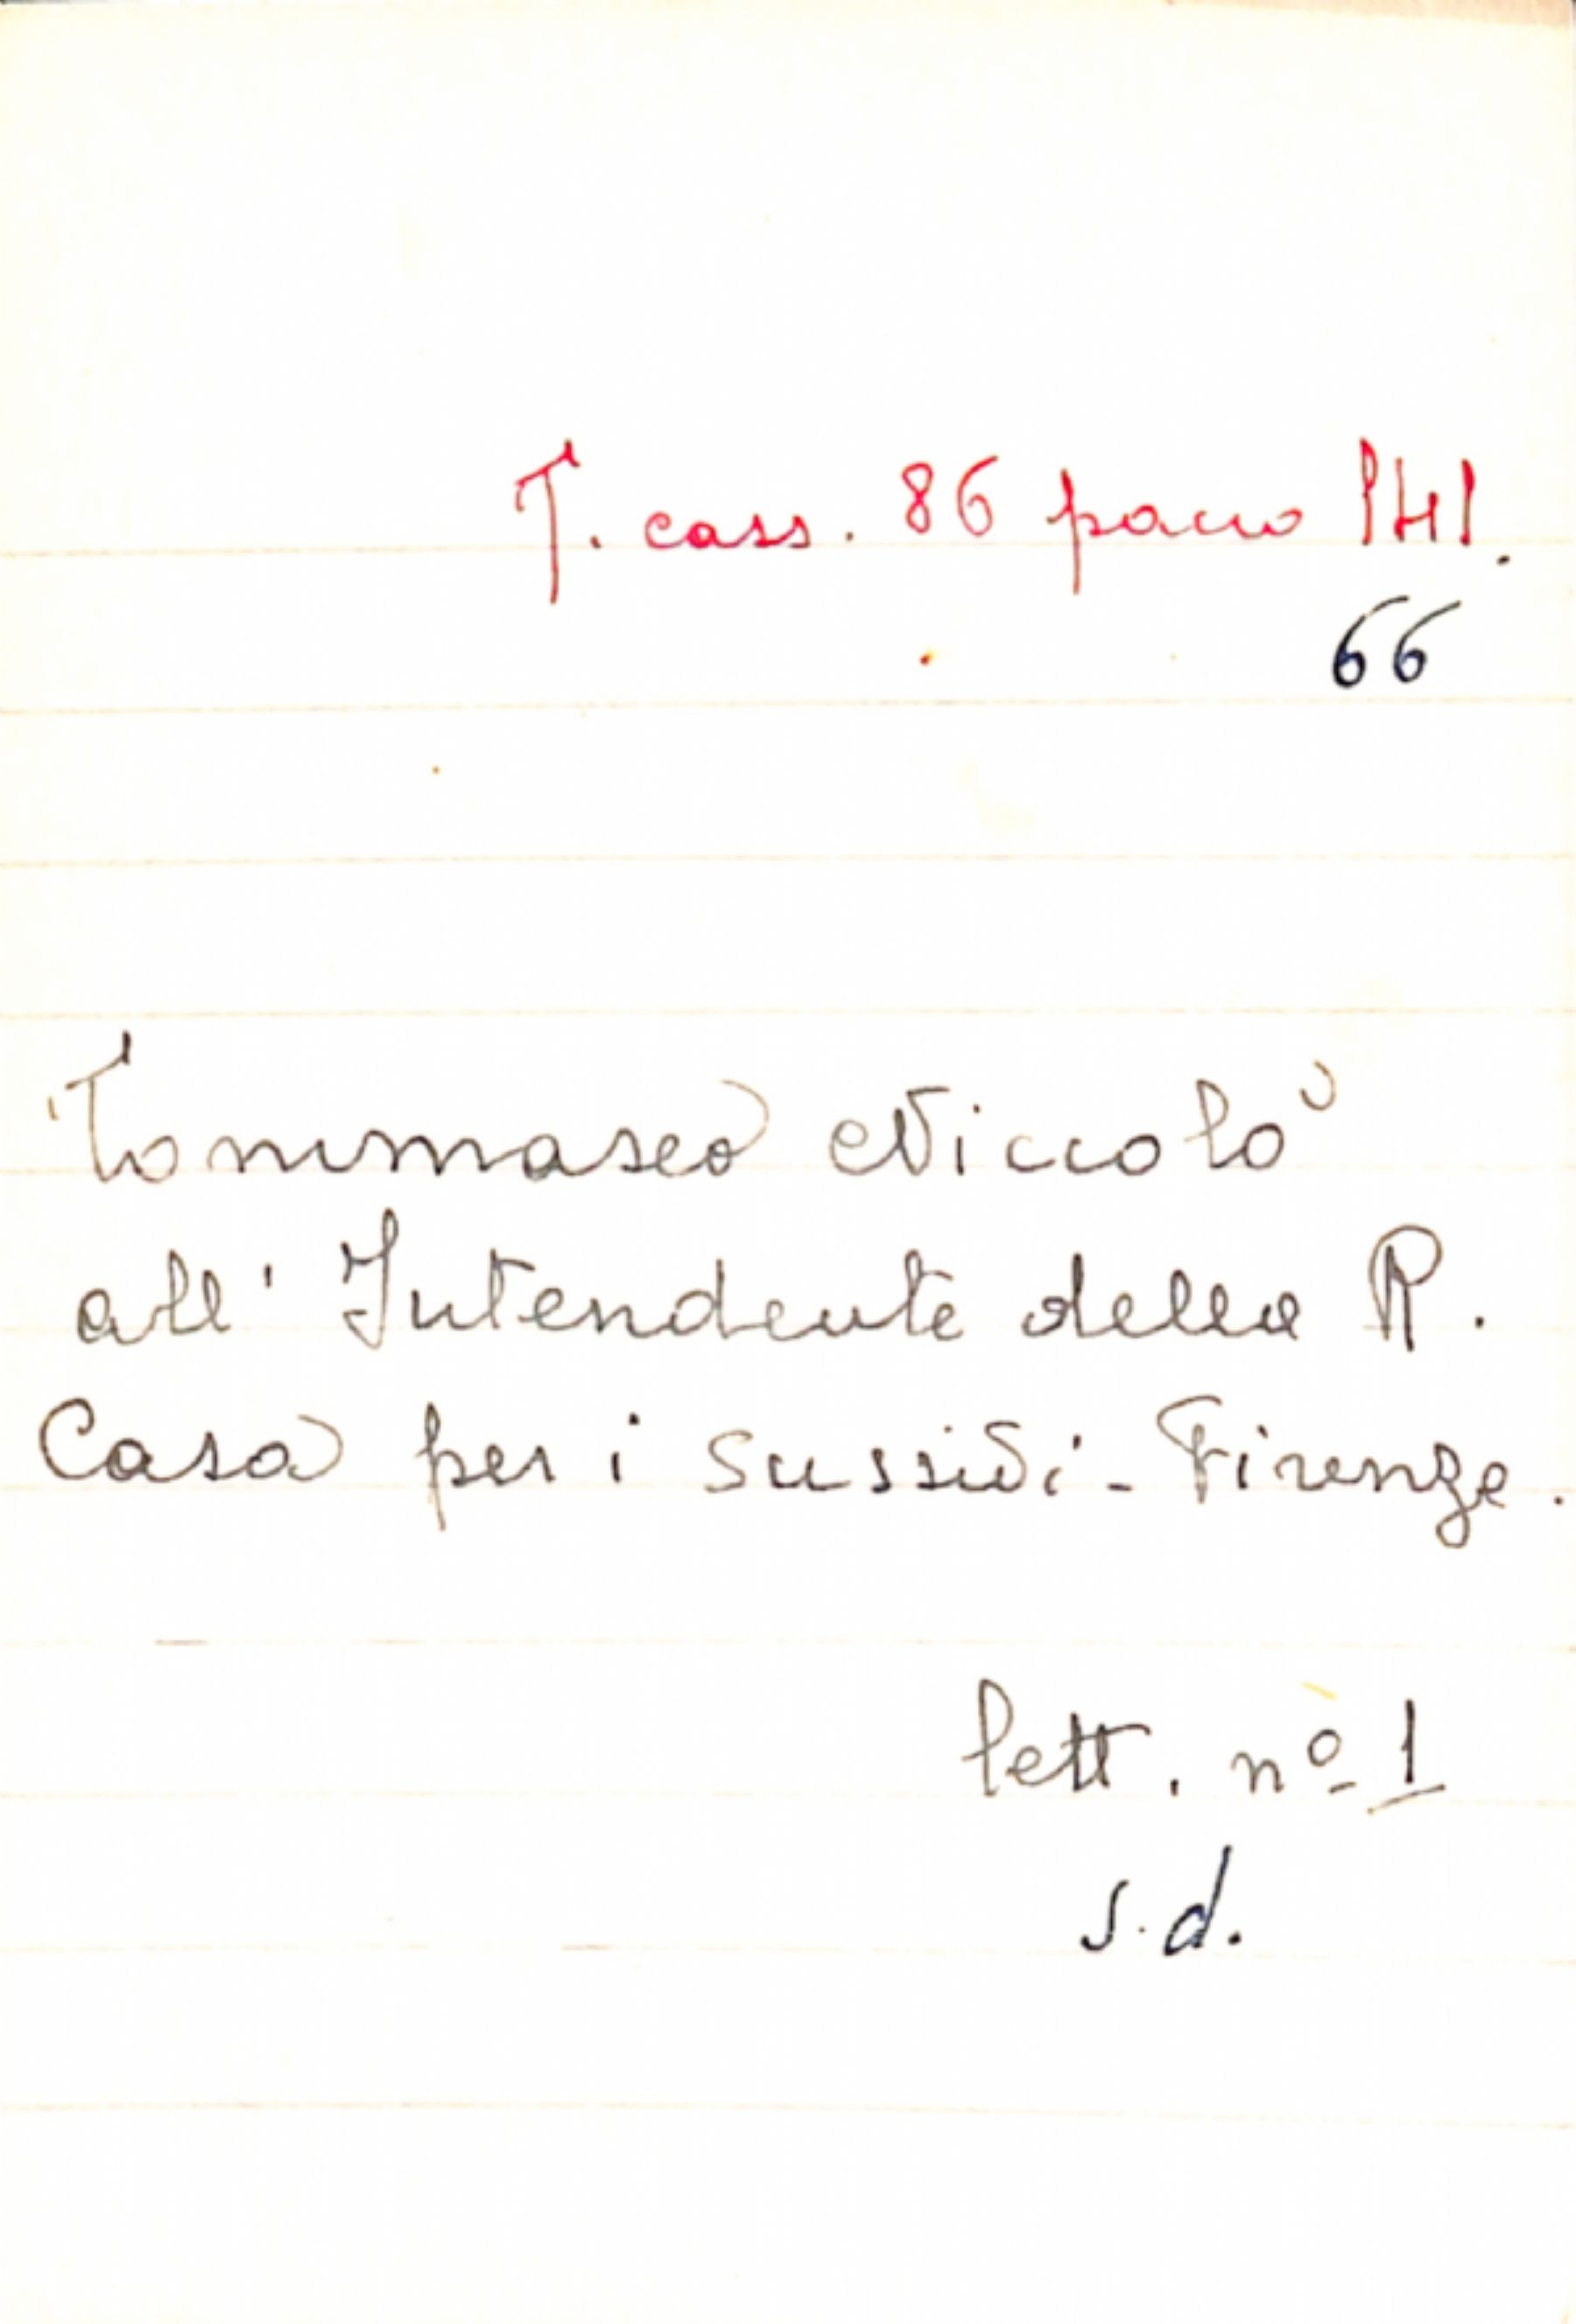 T. cass. 86 pacco 141.
66
Tommaseo Niccolò
all' Intendente della R.
Casa per i sussidi - Firenze.
lett. nº 1
s.d.